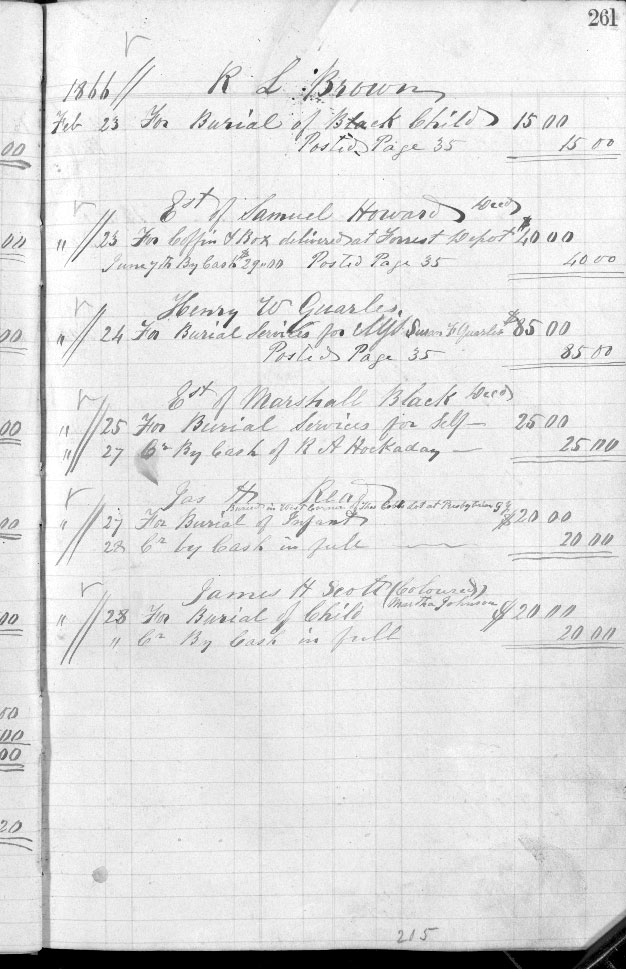 261
1866 // R L Brown
Feb 23 For Burial of Black Child 15 00
Posted Page 35 15 00
Est of Samuel Howard Decd
" // 23 For Coffin & Box delivered at Forrest Depot $40 00
June 7th By Cash $29.00 Posted Page 35 40 00
Henry W Quarles
" // 24 For Burial Services for Susan F Quarles $85 00
Posted Page 35 85 00
Est of Marshall Black Decd
" // 25 For Burial Services for Self — 25 00
" // 27 Cr By Cash of R A Hockaday — 25 00
Jas H Read
Buried in West Corner of Lot at Presbyterian G Y
" // 27 For Burial of Infant $20 00
28 Cr by Cash in full — 20 00
James H Scott (Coloured)
Martha Johnson
" // 28 For Burial of Child $20 00
" Cr By Cash in full 20 00
215
00
00
00
00
00
00
50
00
00
20